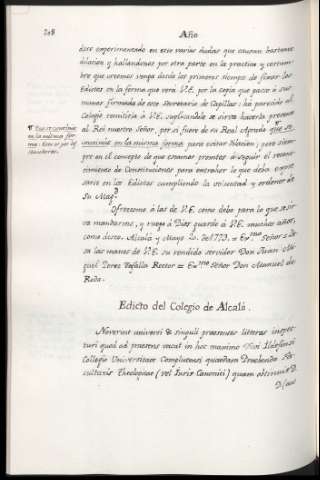 208
Año
dose experimentado en esto varias dudas que causan bastante
dilacion y hallandonos por otra parte en la practica y costum-
bre que tenemos venga desde los primeros tiempos de fixar los
Edictos en la forma que verá V.E. por la copia que pacto à sus
manos firmada de este Secretario de Capillas; ha parecido al
Colegio remitirla à V.E. suplicandole se sirva hacerla presente
al Rei nuestro Señor, por si fuere de su Real Agrado que se
continùe en la misma forma para evitar dilacion; pero siem-
pre en el concepto de que estamos prontos à seguir el recono-
cimiento de Constituciones para entender lo que deba expre-
sarse en los Edictos cumpliendo la voluntad y ordenes de
su Mag.d
¶ Que se continùe
en la misma for-
ma
Ofrecome à las de V.E. como debo para lo que se sir-
va mandarme, y ruego à Dios guarde à V.E. muchos años,
como deseo. Alcala y Mayo 20. de 1773. = Ex.mo Señor = Be-
sa las manos de V.E. su rendido servidor Don Juan Mi-
guel Perez Tafalla Rector = Ex.mo Señor Don Manuel de
Roda.
Edicto del Colegio de Alcalá.
Noverint universi & singuli praesentes litteras inspec-
turi quod ad praesens vacat in hoc maximo Divi Ildefonsi
Collegio Universitatis Complutensis quaedam Praebenda Fa-
cultatis Theologicae (vel Juris Canonici) quam obtinuit D.
D. (aut